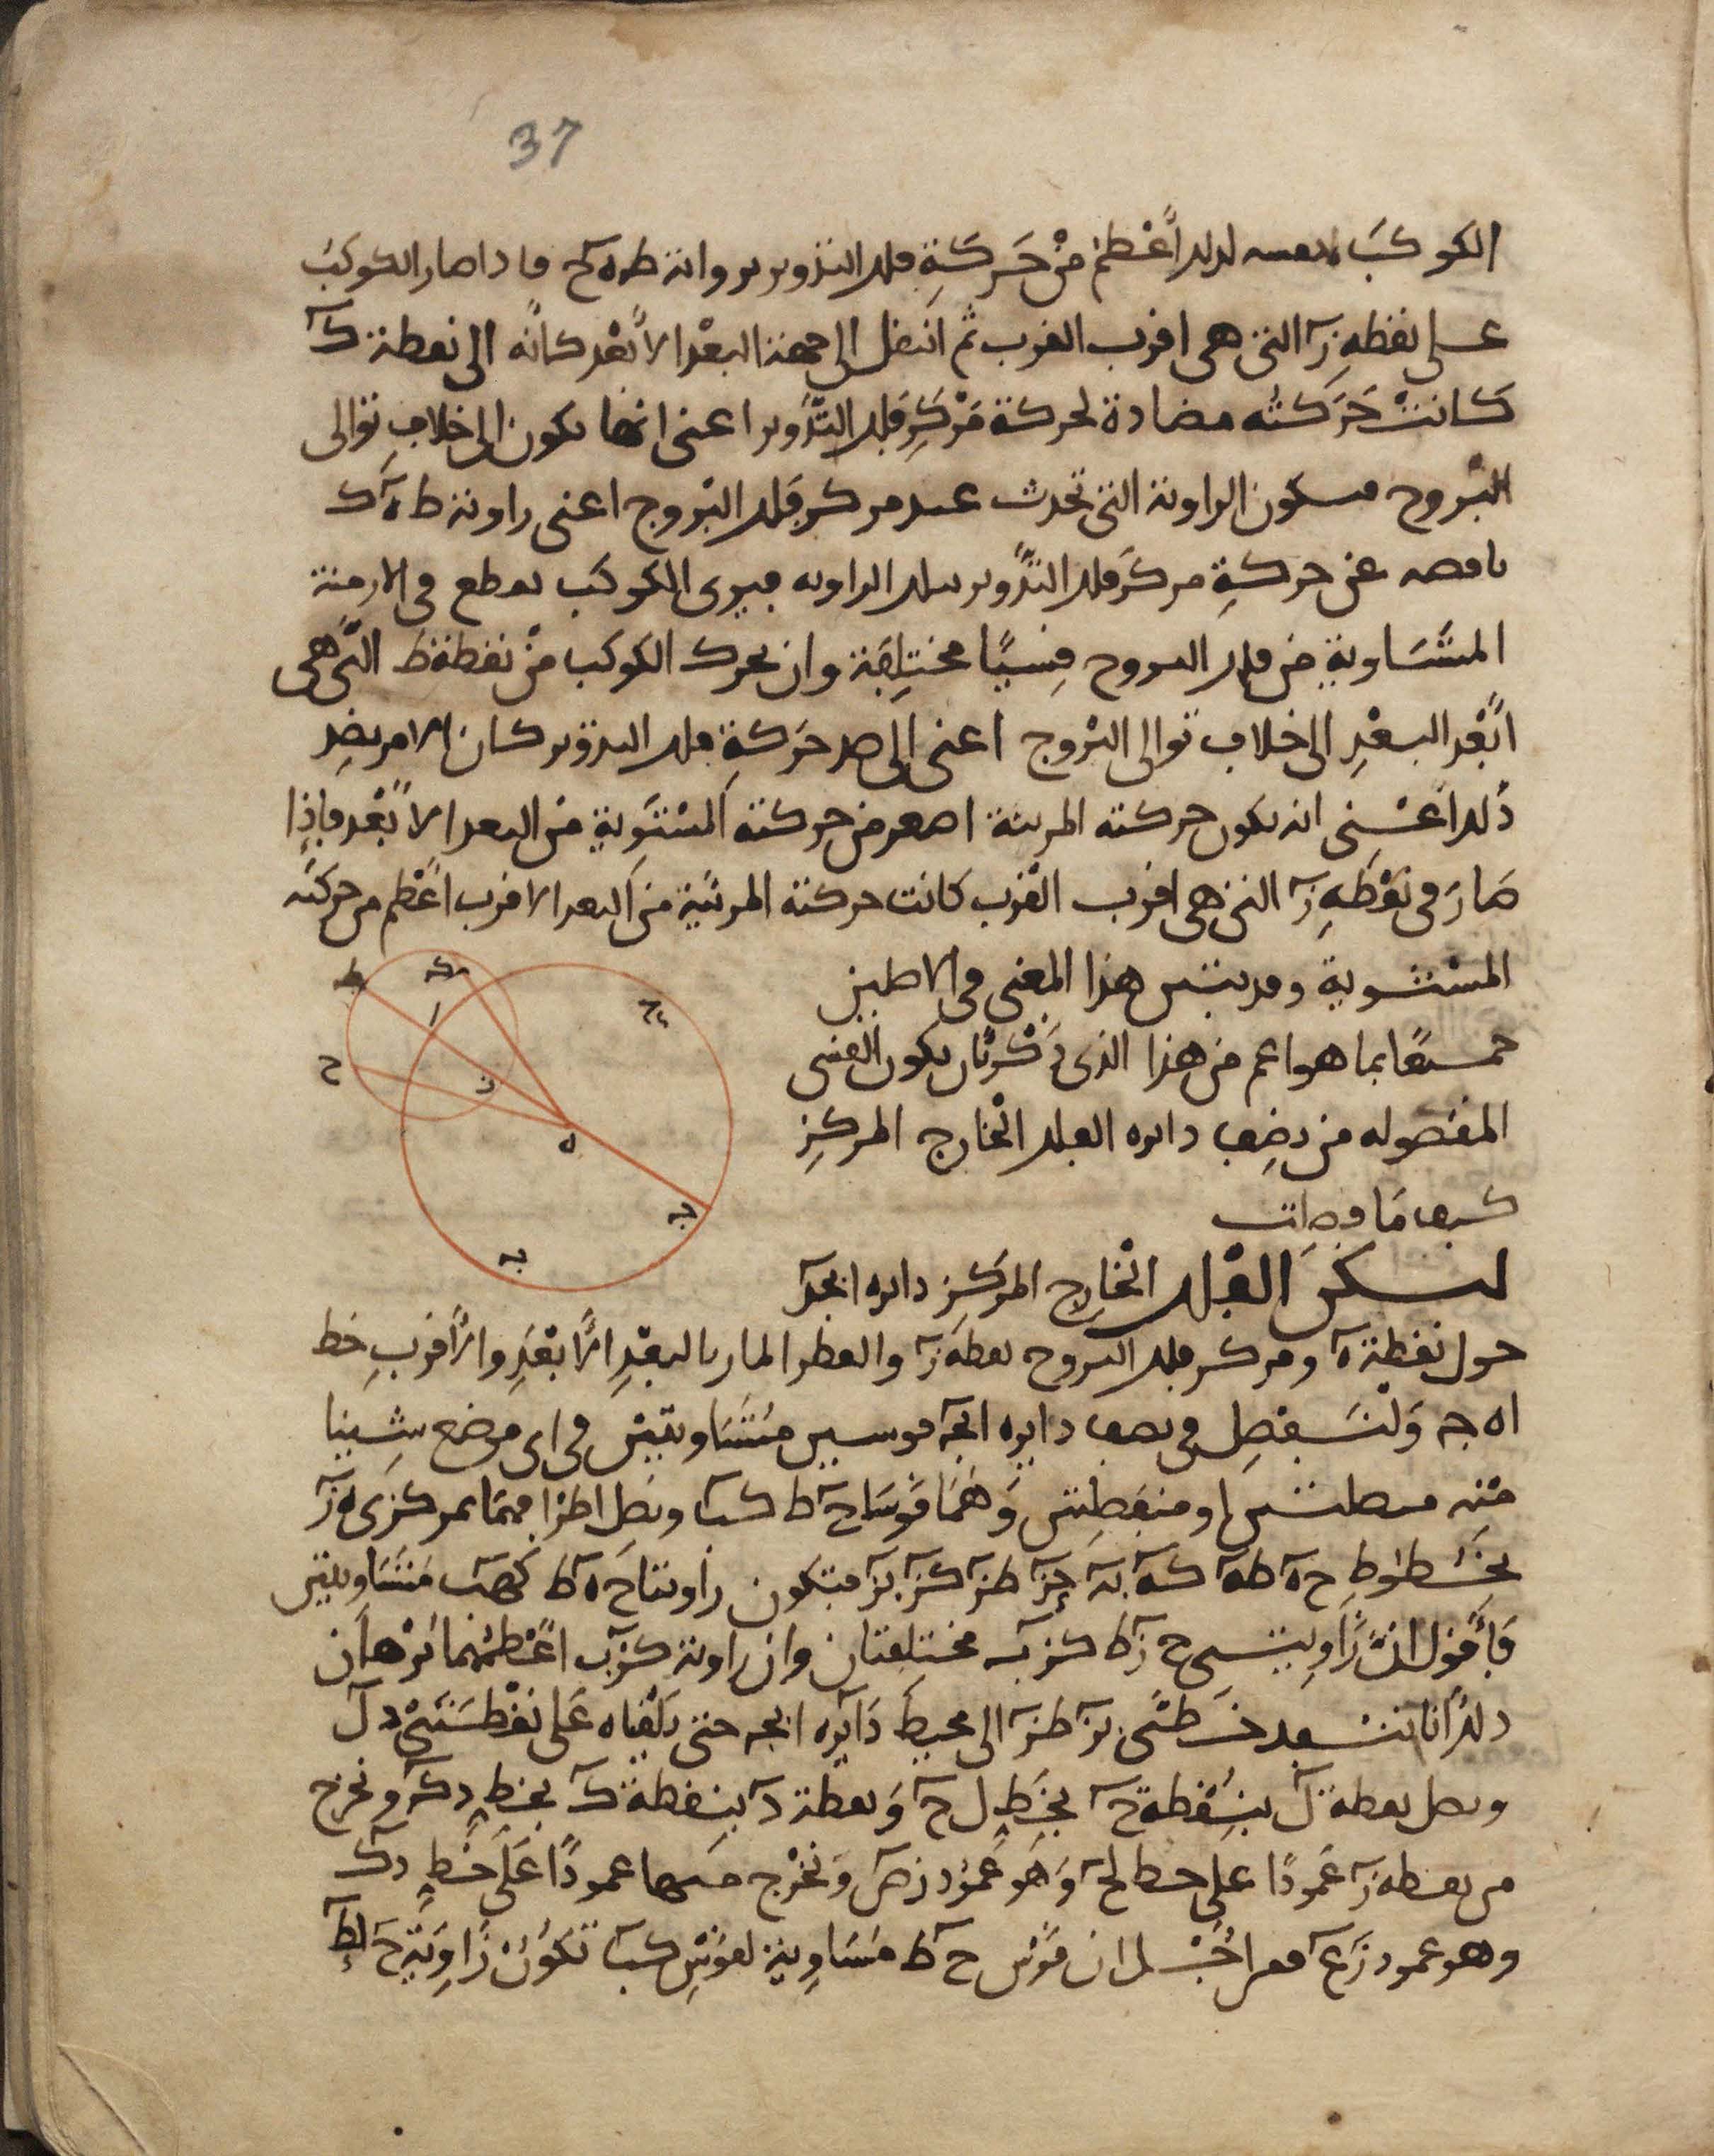 37
الكوكب لدلك أعظم من حركة فلك التدوير بزاوية ط ه ح فاذا صار الكوكب
على نقطة ز التي هي اقرب القرب ثم انتقل الى جهة البعد الأبعد كانه الى نقطة ك
كانت حركته مضادة لحركة مركز فلك التدوير اعني انها تكون الى خلاف توالى
البروج فتكون الزاوية التي تحدث عند مركز فلك البروج اعني زاوية ط ه ك
ناقصة عن حركة مركز فلك التدوير بتلك الزاوية فيرى الكوكب يقطع في الازمنة
المتساوية من فلك البروج قسيا مختلفة وان تحرك الكوكب من نقطة ط التي هي
ابعد البعد الى خلاف توالى البروج اعني الى ضد حركة فلك التدوير كان الامر بضد
ذلك اعني انه يكون حركته المرئية اصغر من حركته المستوية من البعد الأبعد فاذا
صار في نقطة ز التي هي اقرب القرب كانت حركته المرئية من البعد الاقرب اعظم من حركته
المستوية وقد يتبين هذا المعنى في الاصلين
جميعا بما هو اعم من هذا الذي ذكرنا بكون القسي
المفصوله من نصف دايره الفلك الخارج المركز
كيف ما وصلت
ط ك ا ح ز ه د ج ب
ليكن الفلك الخارج المركز دايره ابجد
حول نقطة ه ومركز فلك البروج نقطة ز والقطر المار بالبعد الأبعد والأقرب خط
اه جـ ولنفصل في نصف دايره ابجـ قوسين متساويتين في اى موضع شينا
منه متصلتين او منفصلتين وهما قوسا ح ط كب ونصل اطرافهما بمركزى ه ز
بخطوط حه طه كه به حز طز كز بز فتكون زاويتا ح ه ط كهب متساويتين
فأقول ان زاويتي ح ز ط كزب مختلفتان وان زاوية كزب اعظمهما برهان
ذلك أنا ننفد خطي بز طز الى محيط دايره ابجـ حتى يلقياه على نقطتي د ل
ونصل نقطة ل بنقطة ح بخط ل ح ونقطة د بنقطة ك بخط دك ونخرج
من نقطة ز عمودا على خط لح وهو عمود زص ونخرج منها عمودا على خط دك
وهو عمود زع فمن اجل ان قوس ح ط مساوية لقوس كب تكون زاوية ح لط